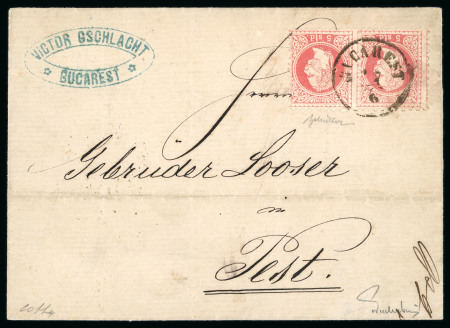 VICTOR GSCHLACHT
BUCAREST
BUCAREST
7
6
Herrn
Gebruder Looser
in
Pest.